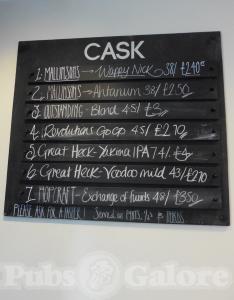 CASK
1. MALLINSONS → Wappy Nick 3.8/ £2.40
2. MALLINSONS → Ahtanum 38/ £2.50
3. OUTSTANDING - Blond 4.5/ £3
4. Revolutions Go Go 4.5/ £2.70
5. Great Heck - Yakima IPA 7.4/. £4
6. Great Heck - Voodoo mild 4.3/ £2.70
7. HOPCRAFT - Exchange of fluids 4.8/ £3.50
PLEASE ASK FOR A TASTER! Served in PINTS, ½s & THIRDS
Pubs Galore